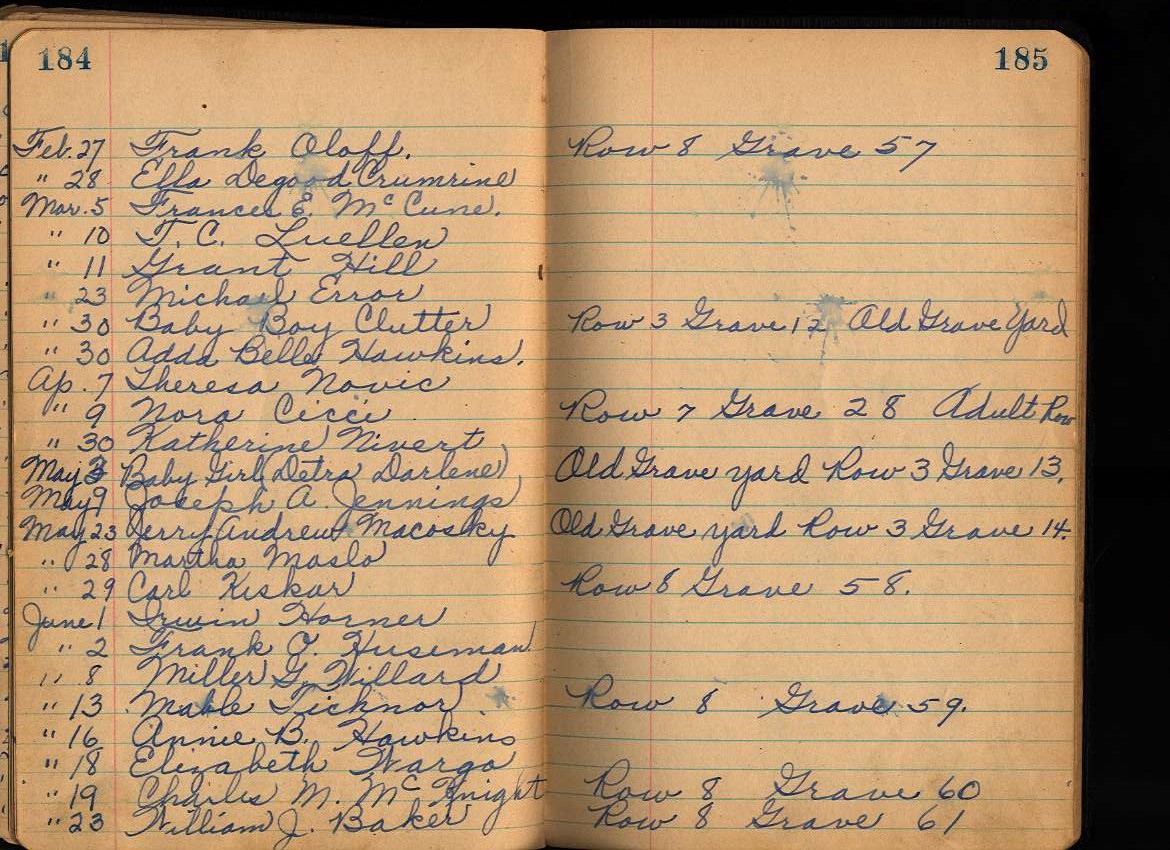 184
185
Feb. 27 Frank Oloff. Row 8 Grave 57
" 28 Ella Degood Crumrine
Mar. 5 Frances E. McCune.
" 10 T. C. Luellen
" 11 Grant Hill
" 23 Michael Error
" 30 Baby Boy Clutter Row 3 Grave 12 Old Grave Yard
" 30 Adda Bell Hawkins.
Ap. 7 Theresa Novic
" 9 Nora Cicci Row 7 Grave 28 Adult Row
" 30 Katherine Nivert
May 3 Baby Girl (Detra Darlene) Old Grave yard Row 3 Grave 13.
May 9 Joseph A. Jennings
May 23 Jerry Andrew Macosky Old Grave yard Row 3 Grave 14.
" 28 Martha Maslo
" 29 Carl Kiskar Row 8 Grave 58.
June 1 Irwin Horner
" 2 Frank O. Huseman
" 8 Miller G. Willard
" 13 Mable Tichnor Row 8 Grave 59.
" 16 Annie B. Hawkins
" 18 Elizabeth Wargo
" 19 Charles M. McKnight Row 8 Grave 60
" 23 William J. Baker Row 8 Grave 61